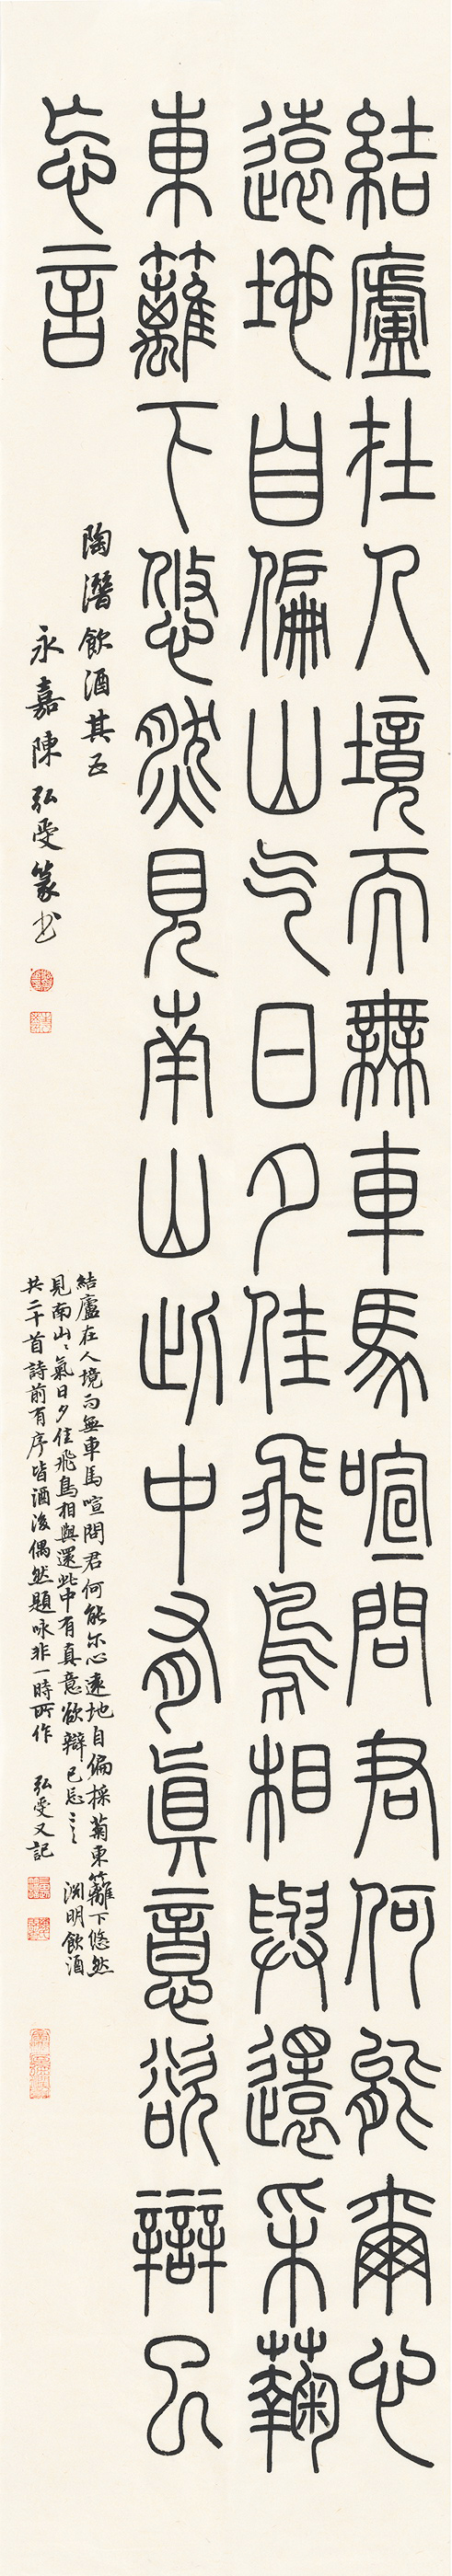 結廬在人境而無車馬喧問君何能爾心
遠地自偏山气日夕佳飛鳥相與還采蘜
東籬下悠然見南山此中有眞意欲辯已
忘言
陶潛飲酒其五
永嘉陳弘受篆书
結廬在人境而無車馬喧問君何能尔心遠地自偏採菊東籬下悠然
見南山〻氣日夕佳飛鳥相與還此中有真意欲辯已忘言 渊明飲酒
共二十首詩前有序皆酒後偶然題咏非一時所作 弘受又記